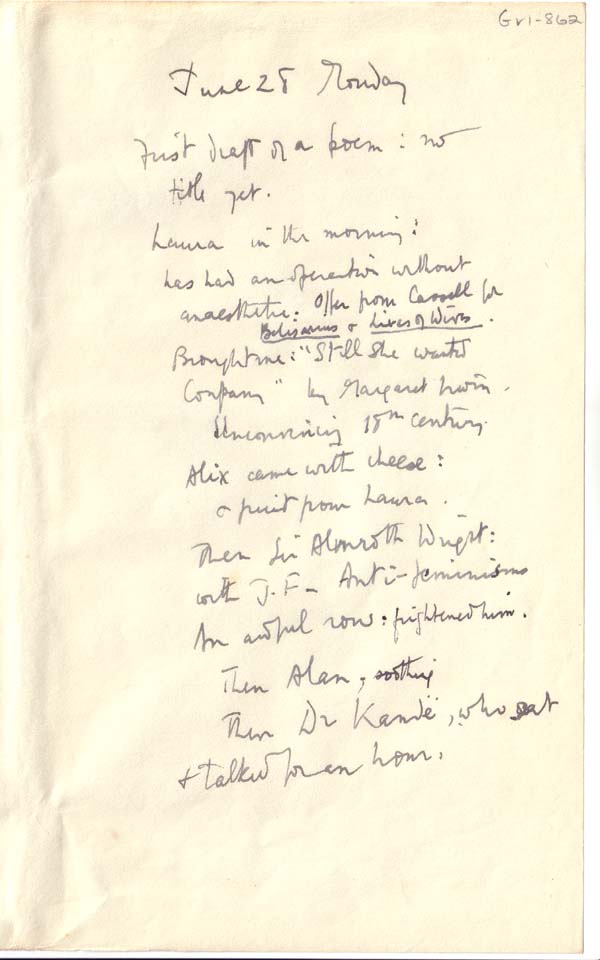 Gr1-862
June 28 Monday
First draft of a poem: no
title yet.
Laura in the morning:
has had an operation without
anaesthetic. Offer from Cassell for
Belisarius & Lives of Wives.
Brought me: "Still She wanted
Company" by Margaret Irwin.
Unconvincing 18th century.
Alix came with cheese:
& fruit from Laura.
Then Sir Almroth Wright:
with J.F. - Anti-feminism
An awful row: frightened him.
Then Alan, soothing
Then Dr Kandë, who sat
& talked for an hour.